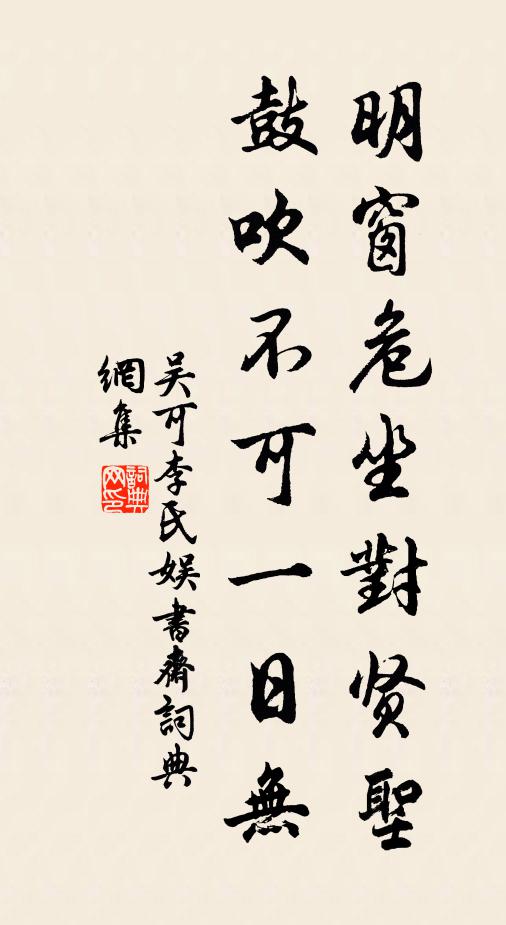 明窗危坐對贤聖
鼓吹不可一日無
吴可李氏娱書齋詞典
網集
詞典
网印